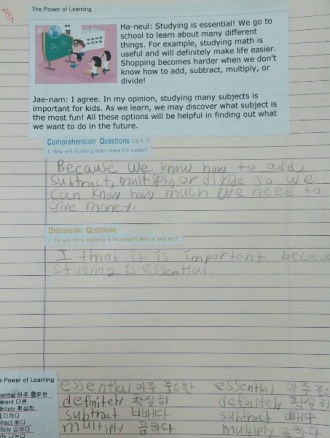 The Power of Learning
Ha-neul: Studying is essential! We go to
school to learn about many different
things. For example, studying math is
useful and will definitely make life easier.
Shopping becomes harder when we don't
know how to add, subtract, multiply, or
divide!
Jae-nam: I agree. In my opinion, studying many subjects is
important for kids. As we learn, we may discover what subject is
the most fun! All these options will be helpful in finding out what
we want to do in the future.
Comprehension Questions
1. Why will studying math make life easier?
Because we know how to add,
subtract, multiply, or divide so we
can know how much we need to
money.
Discussion Questions
1. Do you think studying is important? Why or why not?
I think it is important because
studying is essential.
Power of Learning
essential 아주 중요한 essential 아주
definitely 확실히 definitely 확실히
subtract 빼다 subtract 빼다
multiply 곱하다 multiply 곱하다